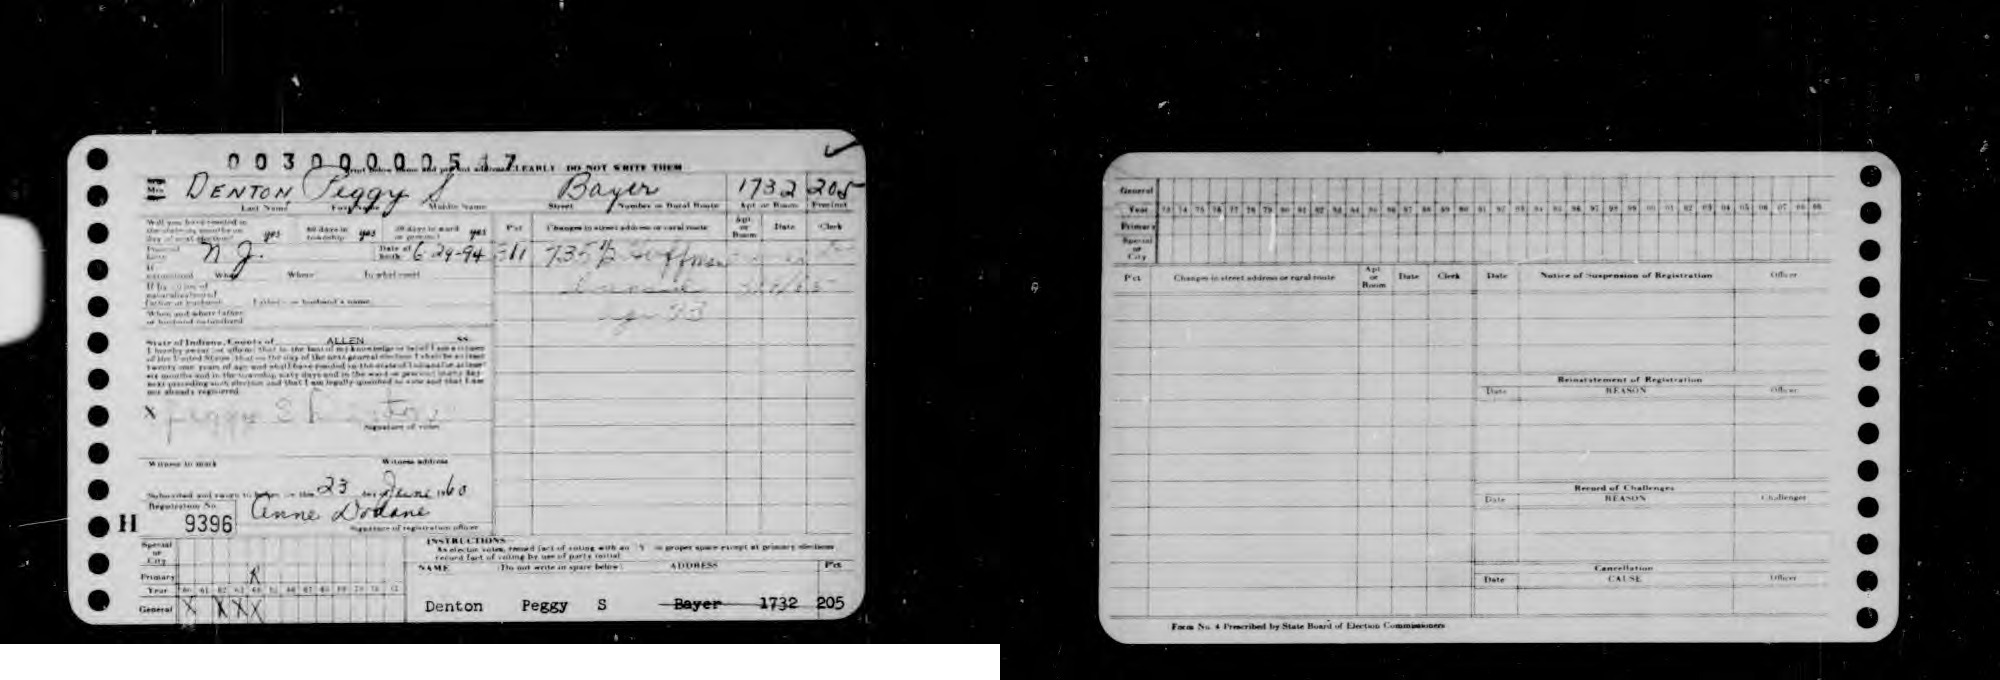 0030000517
CLEARLY DO NOT WRITE THEM
Mrs DENTON, Peggy S Bayer 1732 205
Last Name First Name Middle Name Street Number or Rural Route Apt or Room Precinct
Will you have resided in the state six months on day of next election? yes 60 days in township yes 30 days in ward or precinct yes
Pct Changes in street address or rural route Apt or Room Date Clerk
N J. Date of birth 6-29-94 311 735 1/2 Huffman
If naturalized When Where In what court
If by virtue of naturalization of father or husband Father's or husband's name
When and where father or husband naturalized
State of Indiana, County of ALLEN ss
I hereby swear or affirm that to the best of my knowledge or belief I am a citizen
of the United States, that on the day of the next general election I shall be at least
twenty one years of age and shall have resided in the state of Indiana for at least
six months and in the township sixty days and in the ward or precinct thirty days
next preceding such election and that I am legally qualified to vote and that I am
not already registered
X Peggy S Denton
Signature of voter
Witness to mark Witness address
Subscribed and sworn to before me this 23 day June 1960
Registration No. Anne Dodane
H 9396 Signature of registration officer
Special or City
Primary X
Year 60 61 62 63 64 65 66 67 68 69 70 71 72
General X X X X
INSTRUCTIONS
As elector votes, record fact of voting with an X in proper space except at primary elections
record fact of voting by use of party initial
NAME (Do not write in space below) ADDRESS Pct
Denton Peggy S Bayer 1732 205
General
Year 73 74 75 76 77 78 79 80 81 82 83 84 85 86 87 88 89 90 91 92 93 94 95 96 97 98 99 00 01 02 03 04 05 06 07 08 09
Primary
Special or City
Pct Changes in street address or rural route Apt or Room Date Clerk Date Notice of Suspension of Registration Officer
Reinstatement of Registration
Date REASON Officer
Record of Challenges
Date REASON Challenger
Cancellation
Date CAUSE Officer
Form No. 4 Prescribed by State Board of Election Commissioners